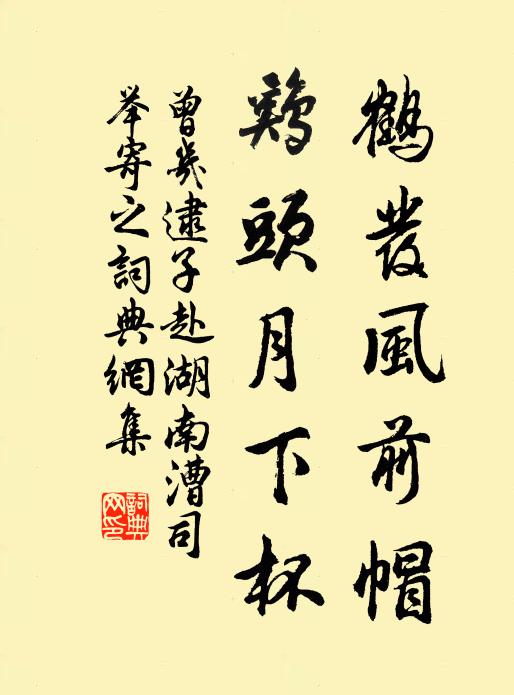 鶴發風前帽
鷄頭月下杯
曾幾逮子赴湖南漕司
举寄之詞典網集
詞典網印